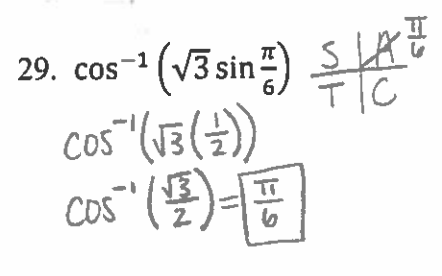 29. cos⁻¹(√3 sin π/6)
S A π/6
T C
cos⁻¹(√3(1/2))
cos⁻¹(√3/2) = π/6